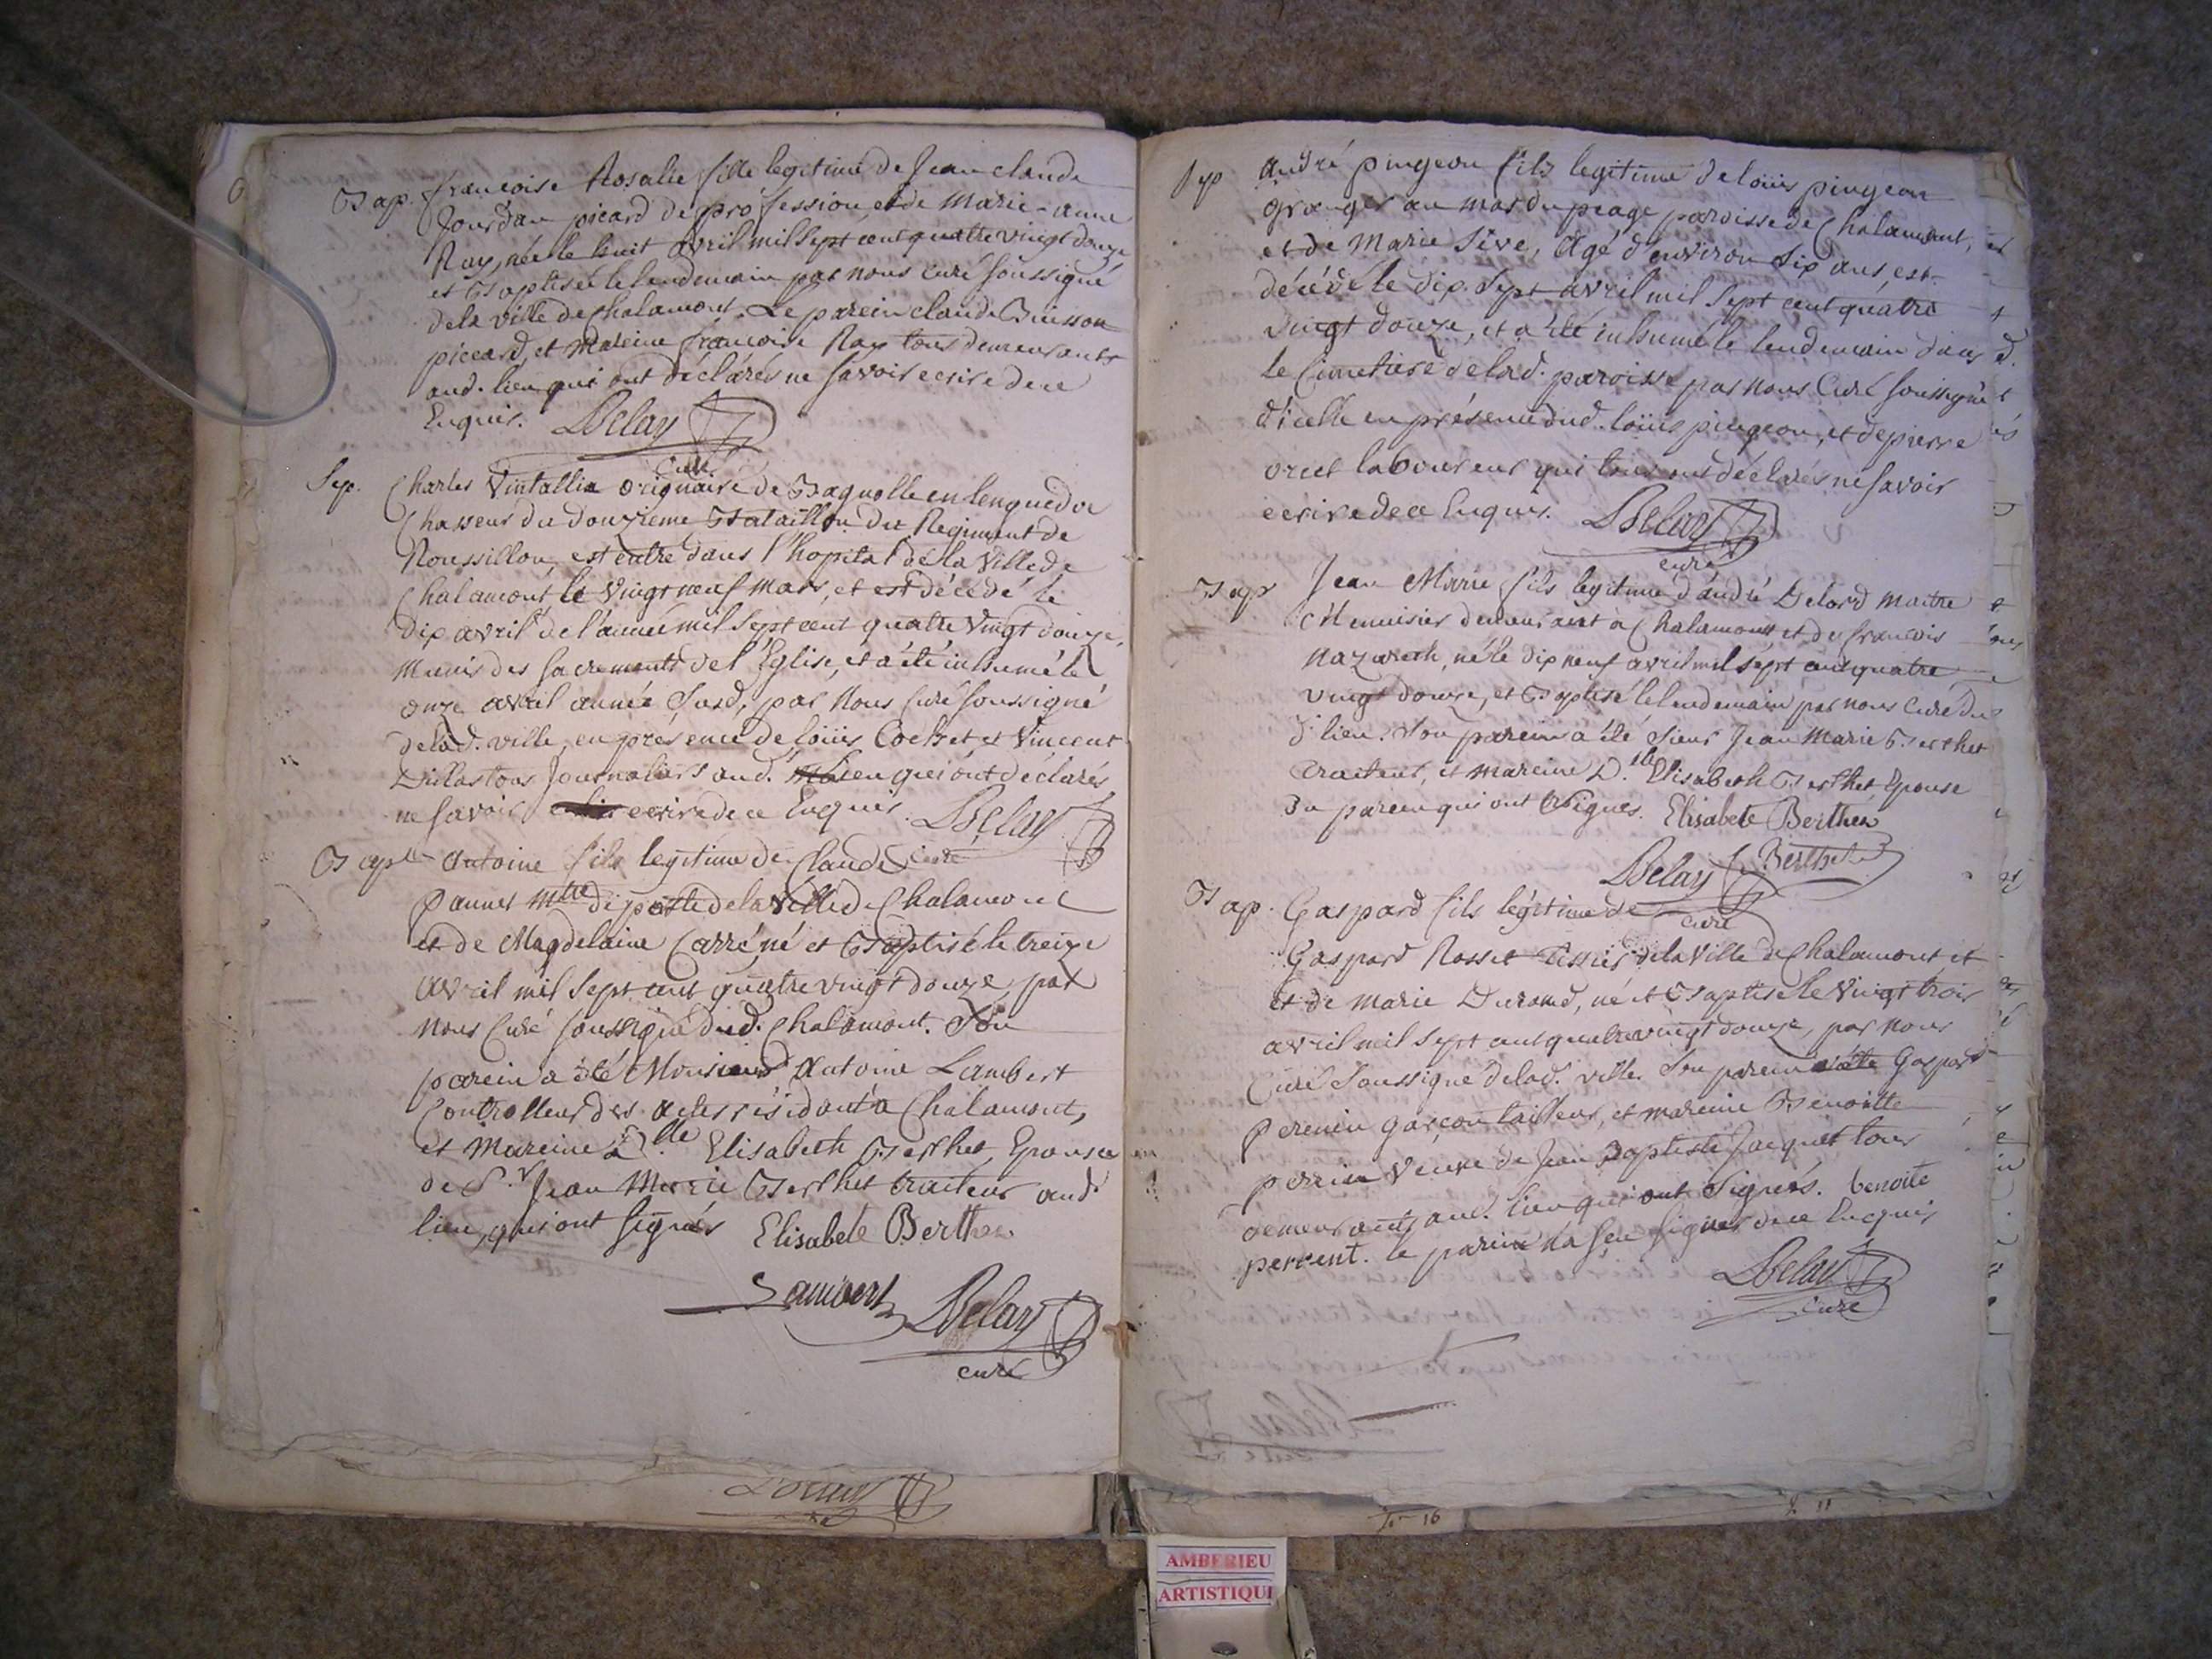 Bap. françoise Rosalie fille legitime de Jean claude
Jourdan picard de profession et de Marie-anne
Ray, née le huit avril mil sept cent quatre vingt douze
et Baptisée le lendemain par nous curé soussigné
de la ville de Chalamont. Le parein claude Buisson
piccard, et Mareine françoise Ray tous demeurants
aud. lieu qui ont déclarés ne savoir ecrire de ce
Enquis. Delay
curé
Sep. Charles Vintallia originaire de Bagnolle en lenguedoc
Chasseur du douzieme Bataillon du Regiment de
Roussillon, est entré dans l'hopital de la Ville de
Chalamont le Vingt neuf mars, et est décédé le
dix avril de l'année mil sept cent quatre Vingt douze,
munis des sacrements de l'Église, et a été inhumé le
onze avril année susd, par Nous Curé soussigné
delad. ville, en présence de loüis Cochet et Vincent
tous Journaliers aud. lieu qui ont déclarés
ne savoir ecrire de ce Enquis. Delay
curé
Bapt Antoine fils legitime de Claude
Pannet mtre de poste de la Ville de Chalamont
et de Magdelaine Carré, né et Baptisé le treize
avril mil sept cent quatre vingt douze par
nous Curé soussigné dud. Chalamont. Son
parein a été Monsieur Antoine Lambert
Controlleur des actes résidant à Chalamont,
et Mareine Dlle Elisabeth Berthet, Epouse
de Sr Jean Marie Berthet traiteur aud.
lieu, qui ont signés Elisabeté Berthet
Lambert Delay
curé
Sep André pingeon fils legitime de loüis pingeon
granger au mas du peage paroisse de Chalamont,
et de Marie Sève, âgé d'environ six ans est
décédé le dix sept avril mil sept cent quatre
vingt douze, et a été inhumé le lendemain dans
le Cimetiere de lad. paroisse par nous Curé soussigné
d'icelle en présence dud. loüis pingeon, et de pierre
oriet laboureur qui tous ont déclarés ne savoir
ecrire de ce Enquis. Delay
curé
Bap Jean Marie fils legitime d'andré Delord maitre
Menuisier demeurant à Chalamont et de francois
Nazareth, né le dix neuf avril mil sept cent quatre
vingt douze, et Baptisé le lendemain par nous Curé du
d. lieu. Son parein a été sieur Jean Marie Berthet
traiteur, et mareine D.lle Elisabeth Berthet Epouse
du parein qui ont signés. Elisabete Berthet
Delay Berthet
curé
Bap. Gaspard fils légitime de
Gaspard Rosset Tissier de la Ville de Chalamont et
et de Marie Durand, né et Baptisé le Vingt trois
avril mil sept cent quatre vingt douze, par nous
Curé soussigné delad. ville. Son parein a été Gaspard
Perenin garçon tailleur, et mareine Benoitte
perrin Veuve de Jean Baptiste Jacquet tous
demeurants aud. lieu qui ont signés. benoite
perrent. le parein n'a seu signer de ce Enquis
Delay
curé
Delay
16
11
AMBERIEU
ARTISTIQUE